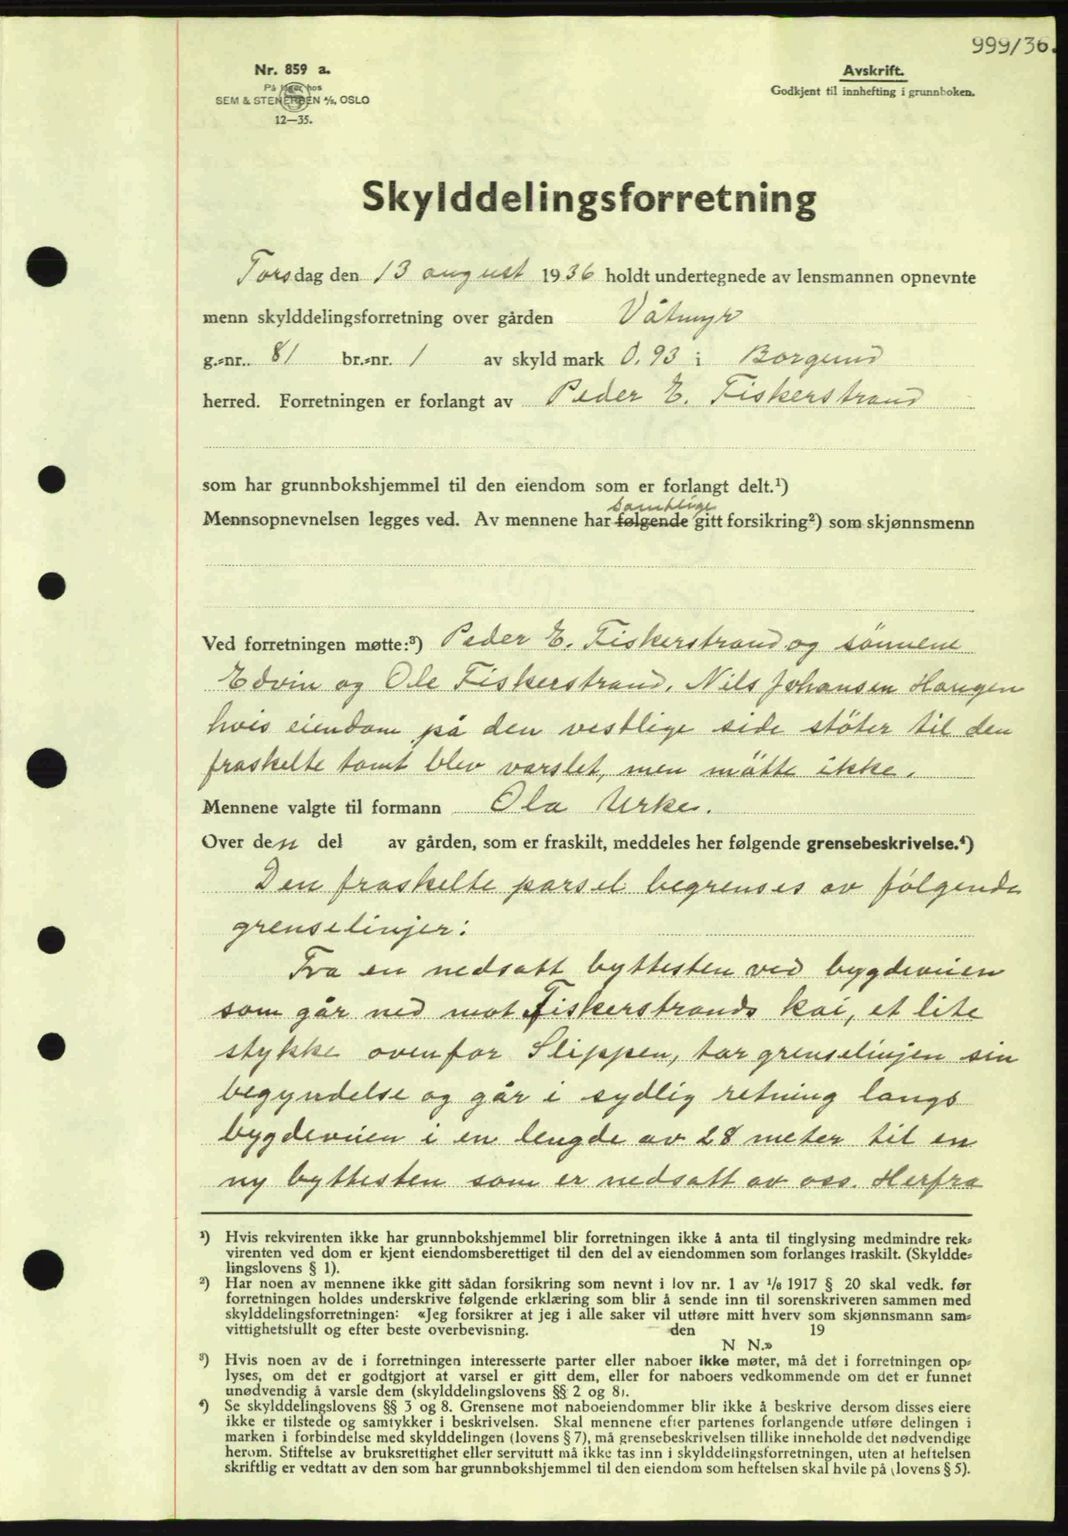 999/36.
Nr. 859 a.
På lager hos
SEM & STENERSEN A/S, OSLO
12—35.
Avskrift.
Godkjent til innhefting i grunnboken.
Skylddelingsforretning
Torsdag den 13 august 1936 holdt undertegnede av lensmannen opnevnte
menn skylddelingsforretning over gården Våtmyr
g.-nr. 81 br.-nr. 1 av skyld mark 0.93 i Borgund
herred. Forretningen er forlangt av Peder E. Fiskerstrand
som har grunnbokshjemmel til den eiendom som er forlangt delt.¹)
samtlige
Mennsopnevnelsen legges ved. Av mennene har følgende gitt forsikring²) som skjønnsmenn
Ved forretningen møtte:³) Peder E. Fiskerstrand og sönnene
Edvin og Ole Fiskerstrand. Nils Johansen Haugen
hvis eiendom på den vestlige side stöter til den
fraskelte tomt blev varslet, men mötte ikke.
Mennene valgte til formann Ola Urke.
Over den del av gården, som er fraskilt, meddeles her følgende grensebeskrivelse.⁴)
Den fraskelte parsel begrenses av fölgende
grenselinjer:
Fra en nedsatt byttesten ved bygdeveien
som går ned mot Fiskerstrands kai, et lite
stykke ovenfor Slippen, tar grenselinjen sin
begyndelse og går i sydlig retning langs
bygdeveien i en lengde av 28 meter til en
ny byttesten som er nedsatt av oss. Herfra
¹) Hvis rekvirenten ikke har grunnbokshjemmel blir forretningen ikke å anta til tinglysing medmindre rek-
virenten ved dom er kjent eiendomsberettiget til den del av eiendommen som forlanges fraskilt. (Skyldde-
lingslovens § 1).
²) Har noen av mennene ikke gitt sådan forsikring som nevnt i lov nr. 1 av 1/6 1917 § 20 skal vedk. før
forretningen holdes underskrive følgende erklæring som blir å sende inn til sorenskriveren sammen med
skylddelingsforretningen: «Jeg forsikrer at jeg i alle saker vil utføre mitt hverv som skjønnsmann sam-
vittighetsfullt og efter beste overbevisning. den 19
N N.»
³) Hvis noen av de i forretningen interesserte parter eller naboer ikke møter, må det i forretningen op-
lyses, om det er godtgjort at varsel er gitt dem, eller for naboers vedkommende om det er funnet
unødvendig å varsle dem (skylddelingslovens §§ 2 og 8).
⁴) Se skylddelingslovens §§ 3 og 8. Grensene mot naboeiendommer blir ikke å beskrive dersom disses eiere
ikke er tilstede og samtykker i beskrivelsen. Skal mennene efter partenes forlangende utføre delingen i
marken i forbindelse med skylddelingen (lovens § 7), må grensebeskrivelsen tillike inneholde det nødvendige
herom. Stiftelse av bruksrettighet eller servitutt må ikke tas inn i skylddelingsforretningen, uten at heftelsen
skriftlig er vedtatt av den som har grunnbokshjemmel til den eiendom som heftelsen skal hvile på (lovens § 5).